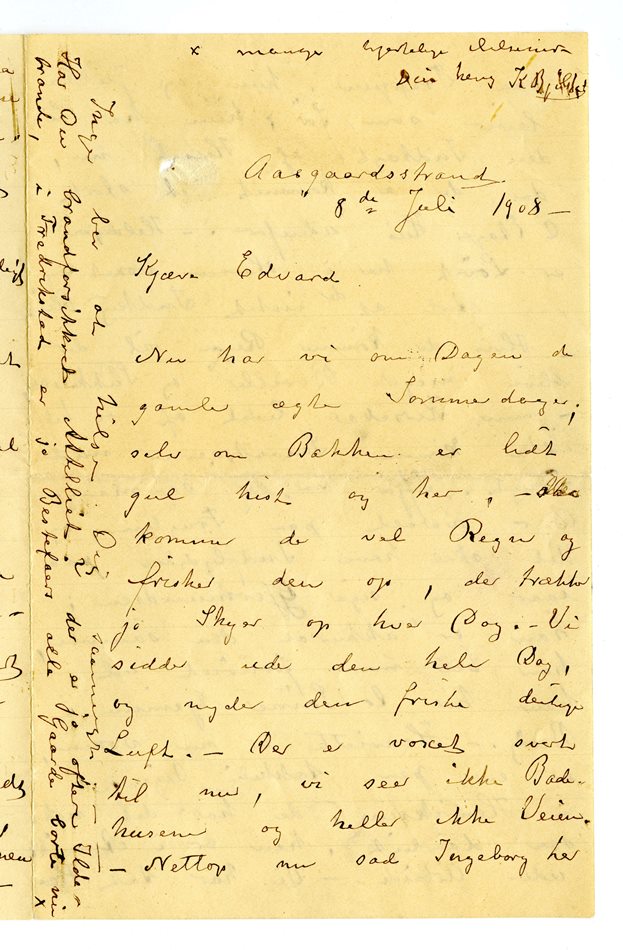 x mange hjertelige Hilsener
Din heng. K Bjølstad
Aasgaardsstrand.
8de Juli 1908 –
Kjære Edvard
Nu har vi om Dagen de
gamle ægte Sommerdage;
selv om Bakken er lidt
gul hist og her, – saa
kommer de vel Regn og
frisker den op, der trækker
jo Skyer op hver Dag. – Vi
sidder ude den hele Dag,
og nyder den friske deilige
Luft. – Der er voxet svært
til nu, vi seer ikke Bade-
husene og heller ikke Veien.
– Nettop nu sad Ingeborg her
Inger ber at hilse Dig saameget. –
Har Du brandforsikret Attelliet? der er jo oftere Ilde-
brande, i Fredrikstad er jo Bestefaers alle Gaarde borte nu x